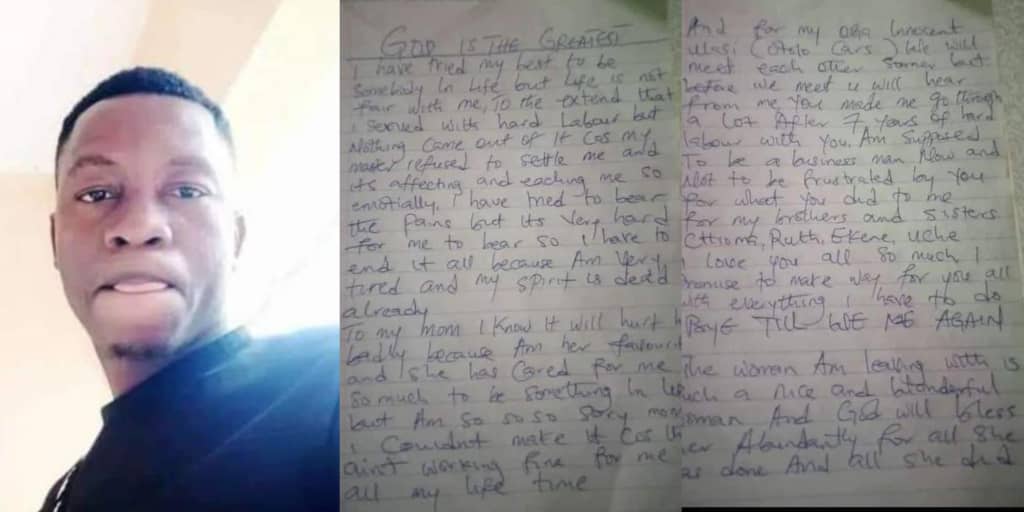 GOD IS THE GREATEST
I have tried my best to be
Somebody in Life but life is not
fair with me, To the extend that
i served with hard Labour but
Nothing Came out of It Cos my
master refused to settle me and
its affecting and eaching me so
emotionally, I have tried to bear
the pains but its Very hard
for me to bear so i have to
end it all because Am Very
tired and my spirit is dead
already
To my mom I Know it will hurt
badly because Am her favourit
and She has Cared for me
so much to be something in
but Am So so so Sorry mom
i Couldnt make it Cos
aint working fine for me
all my life time
And for my oga Innocent
(Otelo Cars) We will
meet each other Sooner but
before we meet u will hear
from me You made me go through
a lot After 7 Years of hard
labour with you, Am Supposed
To be a business man Now and
Not to be frustrated by You
for what you did to me
for my brothers and Sisters
Chioma, Ruth, Ekene, uche
I Love you all So much I
promise to make way for you all
with everything i have to do
BYE TILL WE AGAIN
The woman Am leaving with is
such a nice and Wonderful
woman And God will bless
her Abundantly for all She
has done And all she did